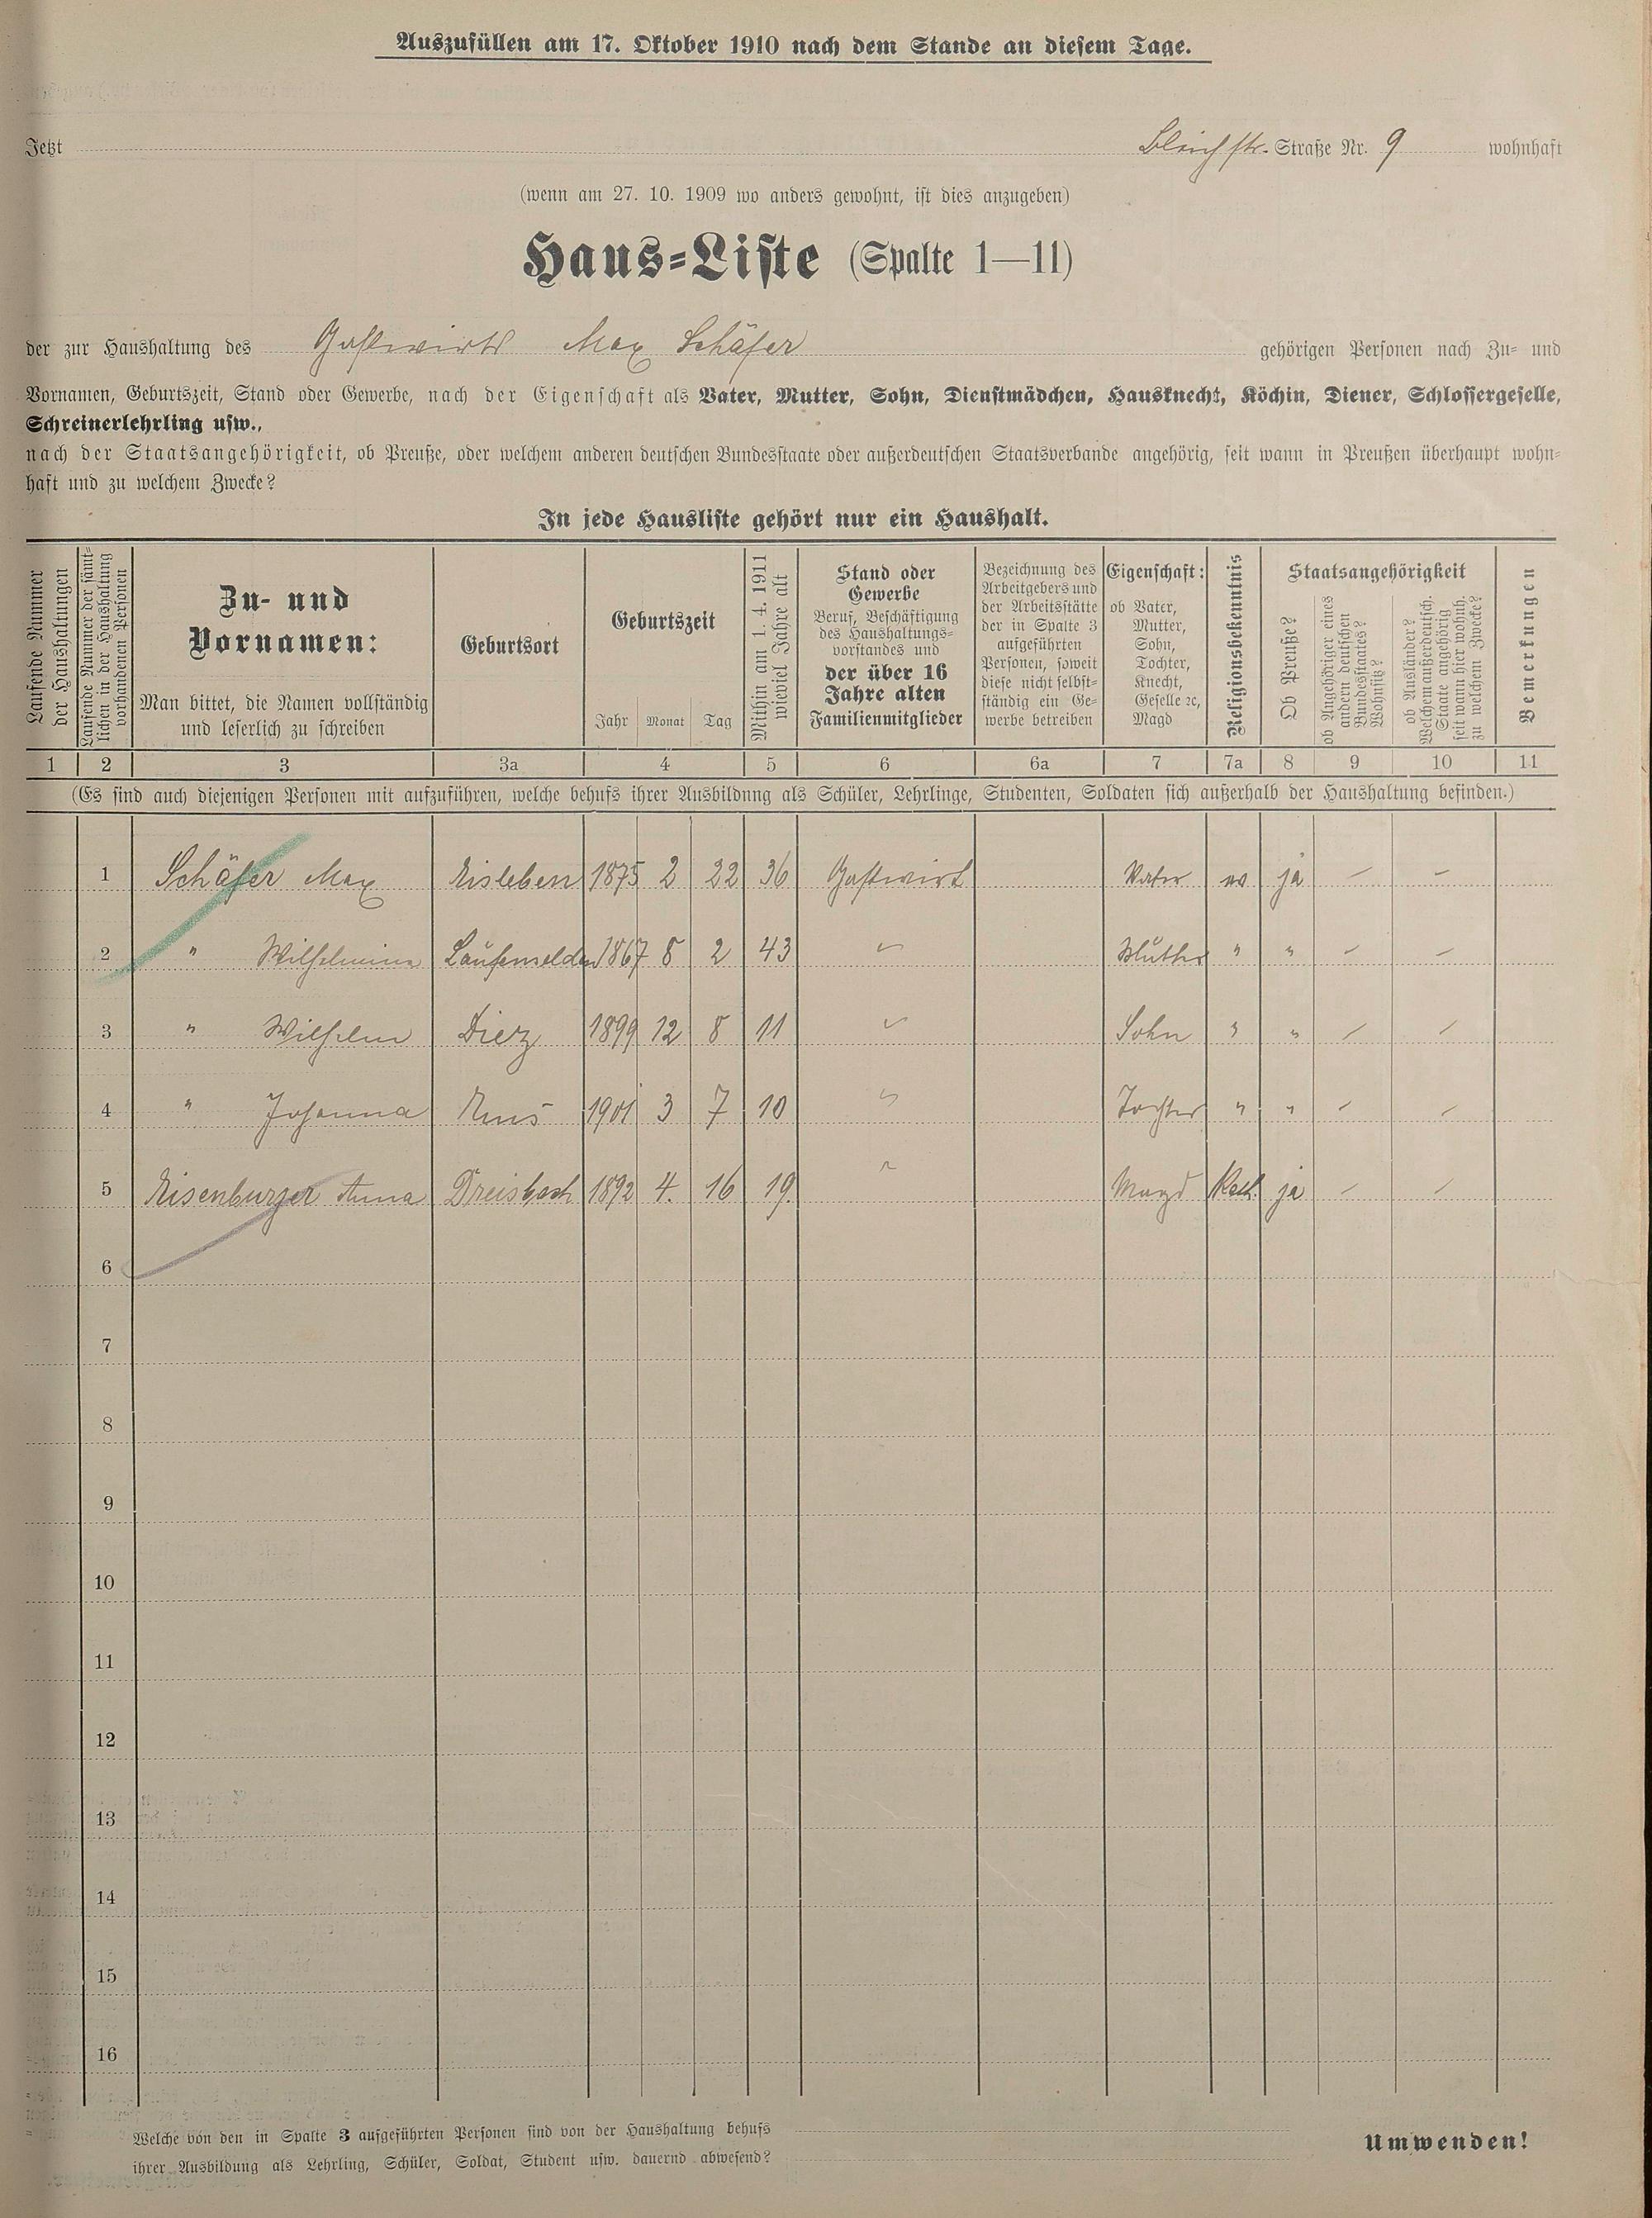 Auszufüllen am 17. Oktober 1910 nach dem Stande an diesem Tage.
Jetzt Bleichstr. Straße Nr. 9 wohnhaft
(wenn am 27. 10. 1909 wo anders gewohnt, ist dies anzugeben)
Haus-Liste (Spalte 1—11)
der zur Haushaltung des Gastwirts Max Schäfer gehörigen Personen nach Zu- und
Vornamen, Geburtszeit, Stand oder Gewerbe, nach der Eigenschaft als Vater, Mutter, Sohn, Dienstmädchen, Hausknecht, Köchin, Diener, Schlossergeselle,
Schreinerlehrling usw.,
nach der Staatsangehörigkeit, ob Preuße, oder welchem anderen deutschen Bundesstaate oder außerdeutschen Staatsverbande angehörig, seit wann in Preußen überhaupt wohn-
haft und zu welchem Zwecke?
In jede Hausliste gehört nur ein Haushalt.
Laufende Nummer
der Haushaltungen
Laufende Nummer der sämt-
lichen in der Haushaltung
vorhandenen Personen
Zu- und
Vornamen:
Man bittet, die Namen vollständig
und leserlich zu schreiben
Geburtsort
Geburtszeit
Jahr Monat Tag
Mithin am 1. 4. 1911
wieviel Jahre alt
Stand oder
Gewerbe
Beruf, Beschäftigung
des Haushaltungs-
vorstandes und
der über 16
Jahre alten
Familienmitglieder
Bezeichnung des
Arbeitgebers und
der Arbeitsstätte
der in Spalte 3
aufgeführten
Personen, soweit
diese nicht selbst-
ständig ein Ge-
werbe betreiben
Eigenschaft:
ob Vater,
Mutter,
Sohn,
Tochter,
Knecht,
Geselle ꝛc,
Magd
Religionsbekenntnis
Staatsangehörigkeit
Ob Preuße?
ob Angehöriger eines
andern deutschen
Bundesstaates?
Wohnsitz?
ob Ausländer?
Welchem außerdeutsch.
Staate angehörig
seit wann hier wohnh.
zu welchem Zwecke?
Bemerkungen
1 2 3 3a 4 5 6 6a 7 7a 8 9 10 11
(Es sind auch diejenigen Personen mit aufzuführen, welche behufs ihrer Ausbildung als Schüler, Lehrlinge, Studenten, Soldaten sich außerhalb der Haushaltung befinden.)
1 Schäfer Max Eisleben 1875 2 22 36 Gastwirt Vater ev ja – –
2 " Wilhelmine Laufenselden 1867 8 2 43 Mutter " " – –
3 " Wilhelm Diez 1899 12 8 11 Sohn " " – –
4 " Johanna Ems 1901 3 7 10 Tochter " " – –
5 Eisenburger Anna Dreisbach 1892 4. 16 19. Magd Kath. ja – –
6
7
8
9
10
11
12
13
14
15
16
Welche von den in Spalte 3 aufgeführten Personen sind von der Haushaltung behufs
ihrer Ausbildung als Lehrling, Schüler, Soldat, Student usw. dauernd abwesend?
Umwenden!